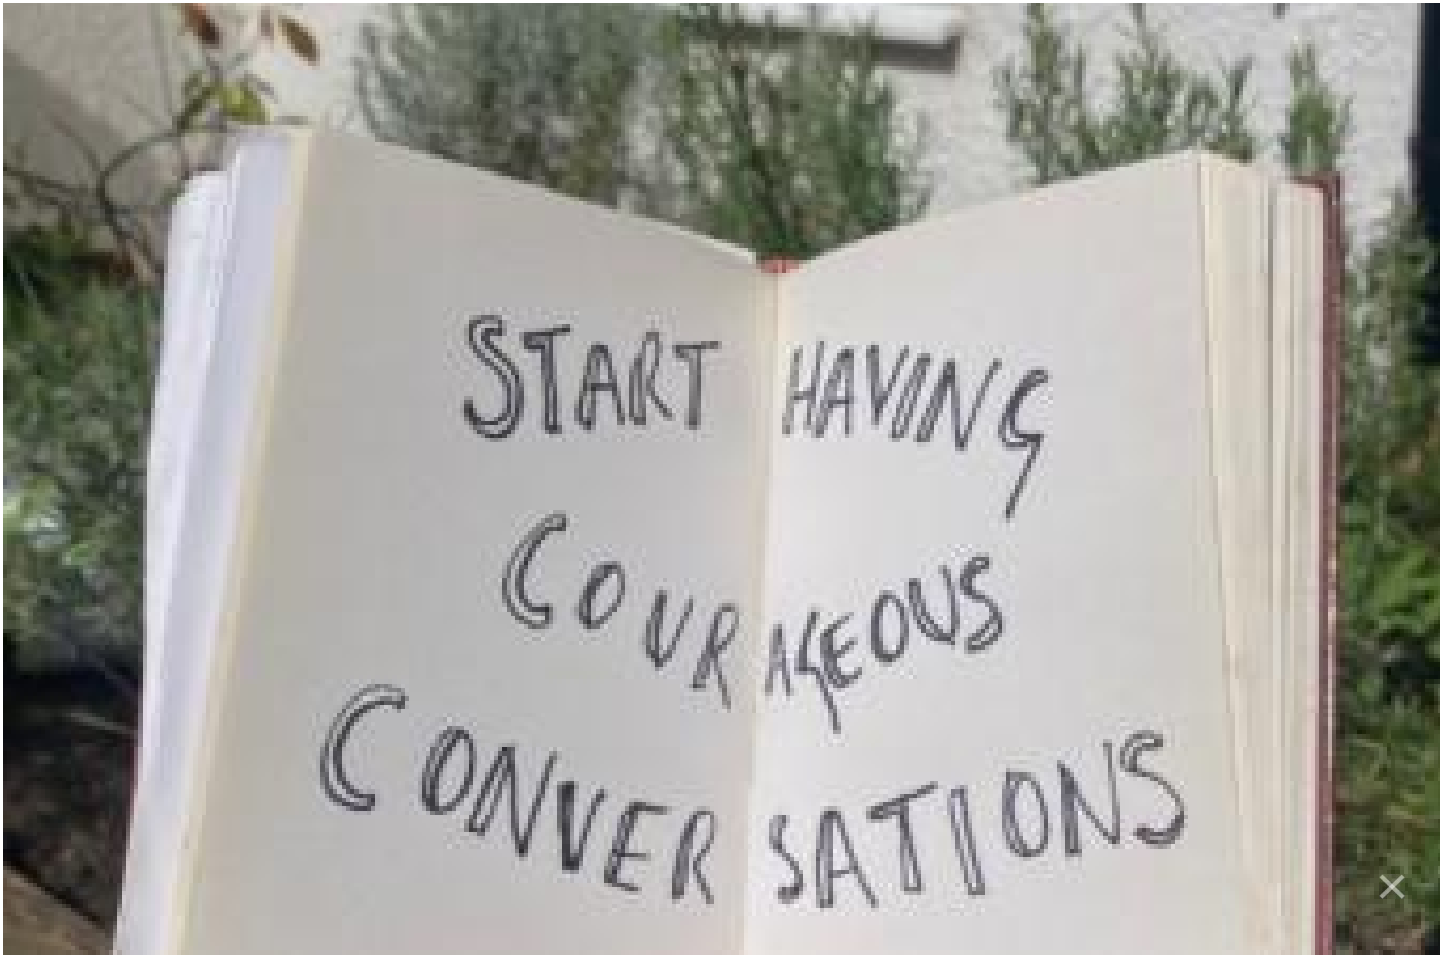 START HAVING
COURAGEOUS
CONVERSATIONS